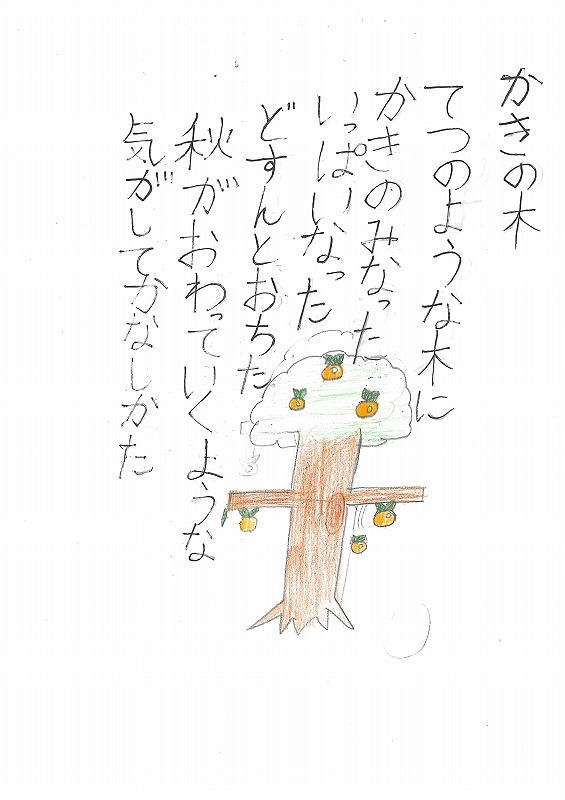 かきの木
てつのような木に
かきのみなった
いっぱいなった
どすんとおちた
秋がおわっていくような
気がしてかなしかた